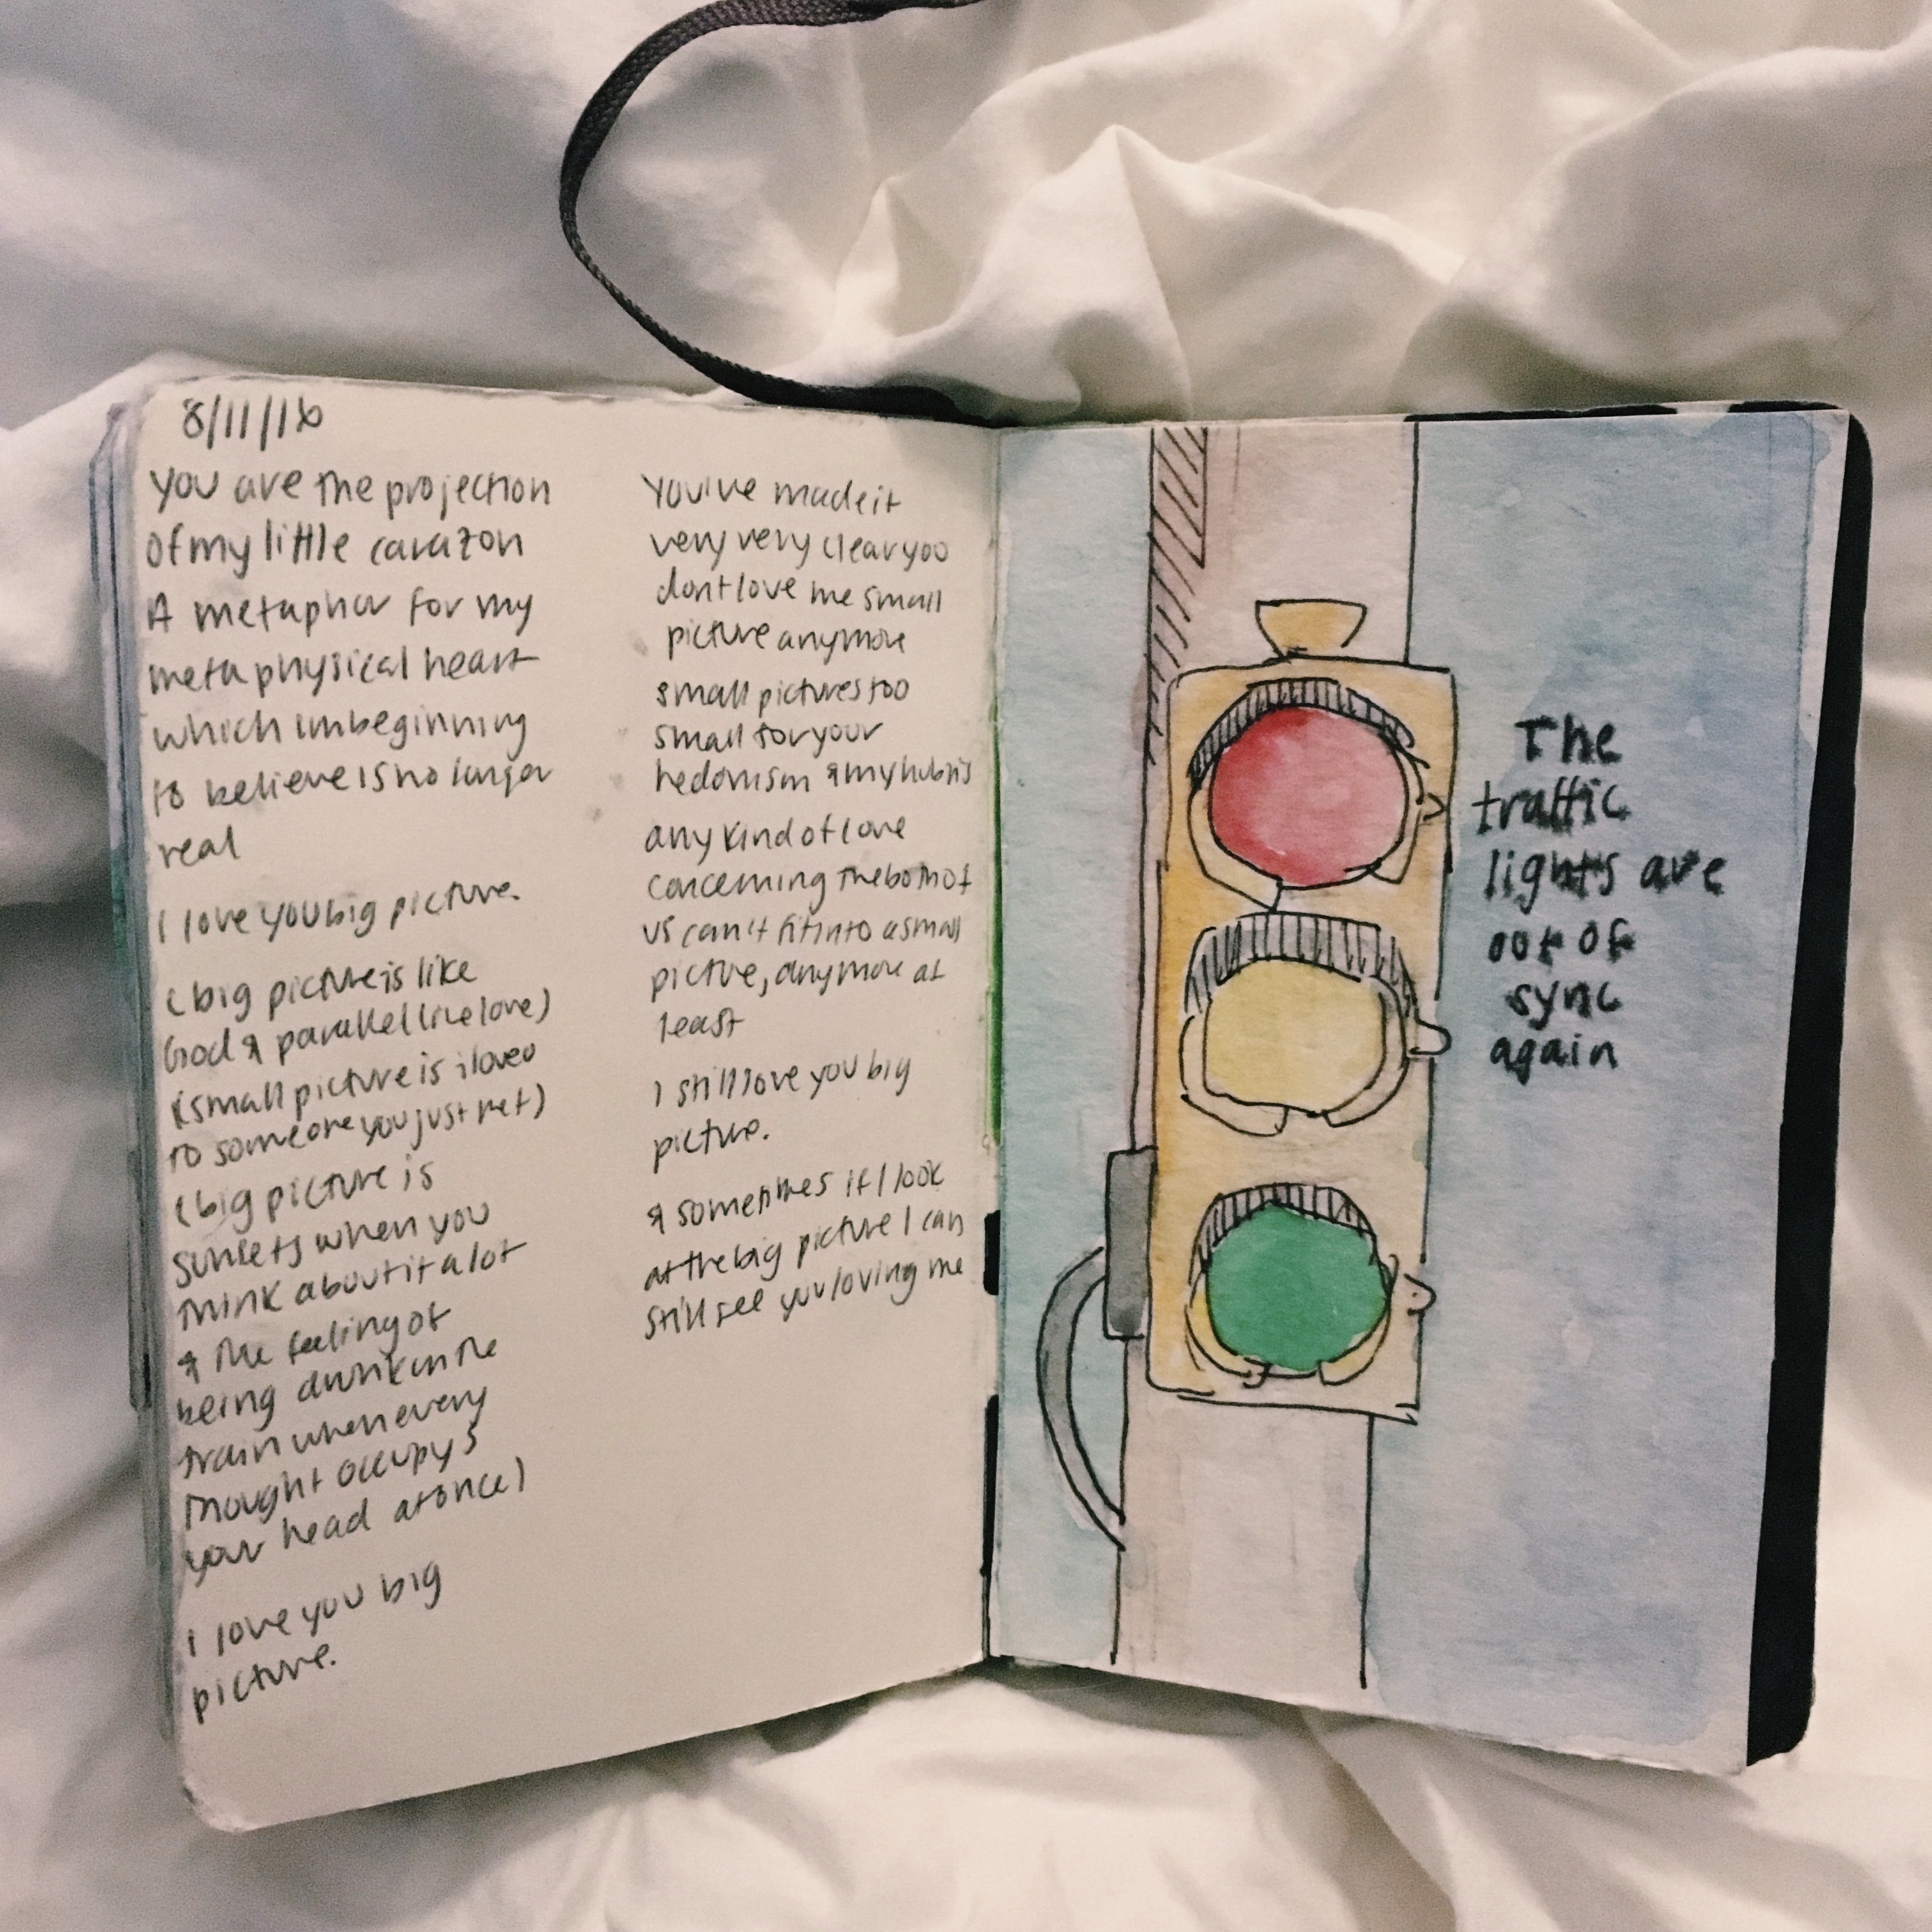 8/11/16
you are the projection
of my little carazon
A metaphor for my
metaphysical heart
which im beginning
to believe is no longer
real
I love you big picture.
(big picture is like
God & parallel line love)
(small picture is i love u
to someone you just met)
(big picture is
sunsets when you
think about it a lot
& the feeling of
being drunk on the
train when every
thought occupys
your head at once)
I love you big
picture.
You've made it
very very clear you
dont love me small
picture anymore
small pictures too
small for your
hedonism & my hubris
any kind of love
concerning the both of
us can't fit into a small
picture, anymore at
least
I still love you big
picture.
& sometimes if I look
at the big picture I can
still see you loving me
The
traffic
lights are
out of
sync
again